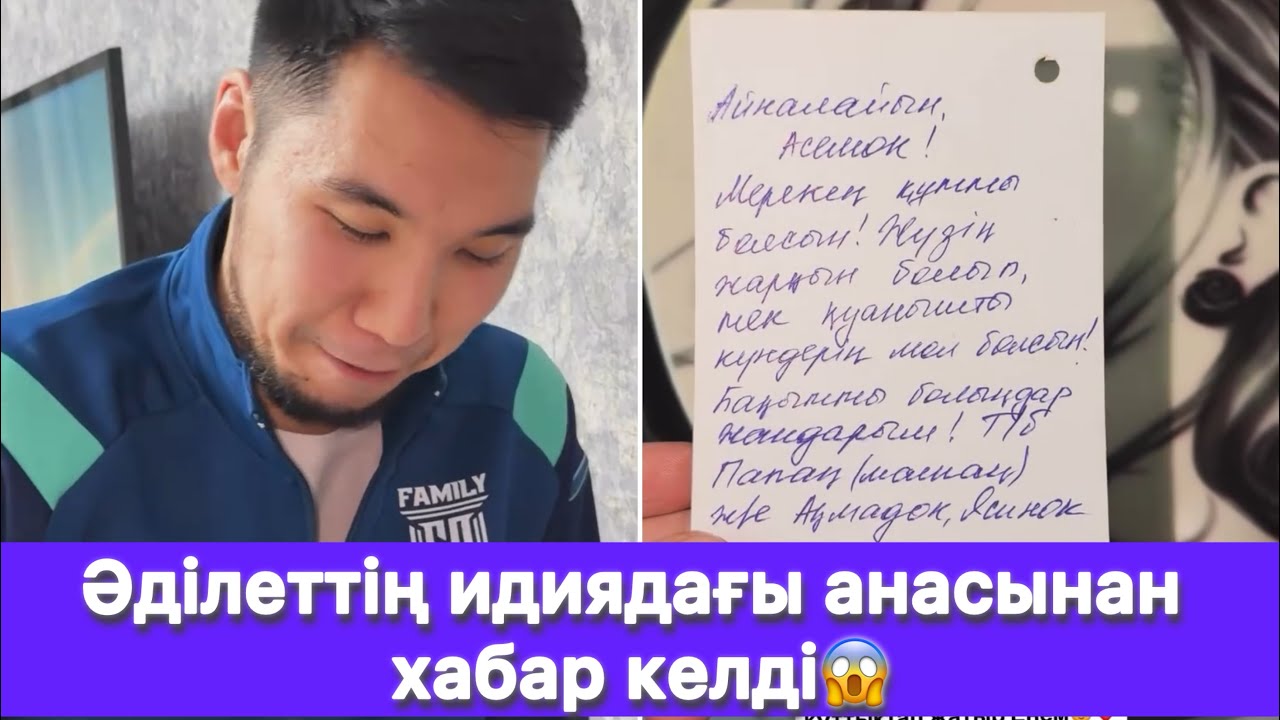 Айналайын,
Асемок!
Мерекең құтты
болсын! Жүзің
жарқын болып,
тек қуанышты
күндерің мол болсын!
Бақытты болыңдар
жандарым! Т/б
Папаң (мамаң)
және Ахмадок, Ясинок
FAMILY
Әділеттің идиядағы анасынан
хабар келді😱